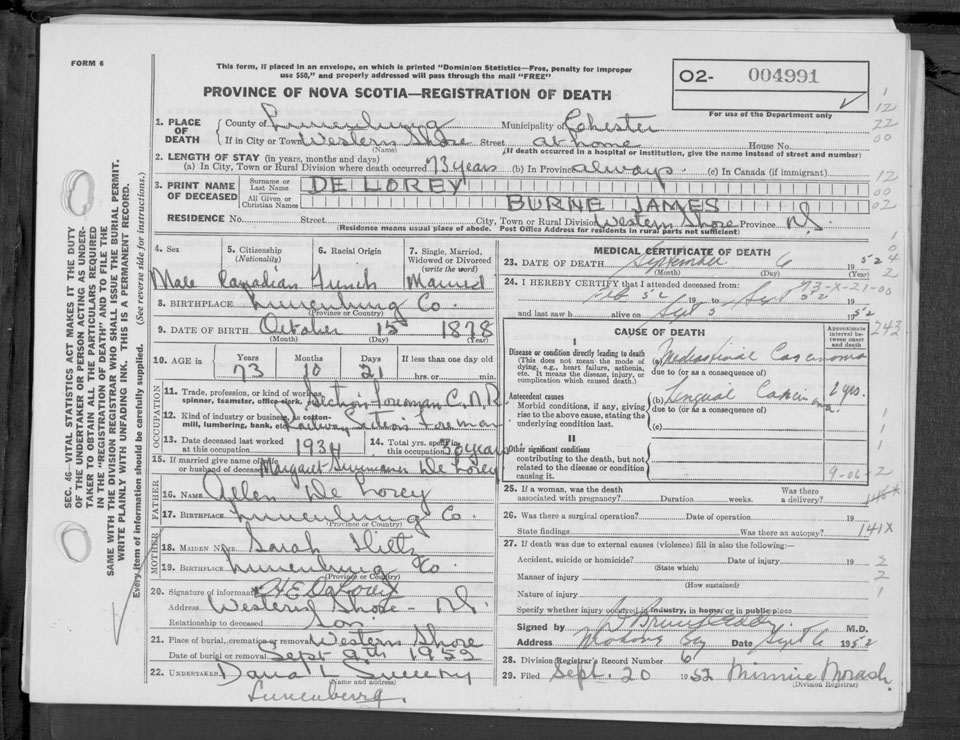 FORM 6
This form, if placed in an envelope, on which is printed "Dominion Statistics—Free, penalty for improper
use $50," and properly addressed will pass through the mail "FREE"
PROVINCE OF NOVA SCOTIA—REGISTRATION OF DEATH
O2- 004991
For use of the Department only
SEC. 46—VITAL STATISTICS ACT MAKES IT THE DUTY
OF THE UNDERTAKER OR PERSON ACTING AS UNDER-
TAKER TO OBTAIN ALL THE PARTICULARS REQUIRED
IN THE "REGISTRATION OF DEATH" AND TO FILE THE
SAME WITH THE DIVISION REGISTRAR WHO SHALL ISSUE THE BURIAL PERMIT.
WRITE PLAINLY WITH UNFADING INK. THIS IS A PERMANENT RECORD.
Every item of information should be carefully supplied. (See reverse side for instructions.)
1. PLACE OF DEATH
County of Lunenburg Municipality of Chester
If in City or Town Western Shore Street at home House No.
(Name) (If death occurred in a hospital or institution, give the name instead of street and number)
2. LENGTH OF STAY (in years, months and days)
(a) In City, Town or Rural Division where death occurred 73 years (b) In Province always (c) In Canada (if immigrant)
3. PRINT NAME OF DECEASED
Surname or Last Name DE LOREY
All Given or Christian Names BURNE JAMES
RESIDENCE No. Street City, Town or Rural Division Western Shore Province N.S.
(Residence means usual place of abode. Post Office Address for residents in rural parts not sufficient)
4. Sex 5. Citizenship (Nationality) 6. Racial Origin 7. Single, Married, Widowed or Divorced (write the word)
Male Canadian French Married
8. BIRTHPLACE Lunenburg Co.
(Province or Country)
9. DATE OF BIRTH October 15 1878
(Month) (Day) (Year)
10. AGE in Years Months Days If less than one day old
73 10 21 hrs. or min.
OCCUPATION
11. Trade, profession, or kind of work as spinner, teamster, office clerk, etc. Section Foreman C.N.R.
12. Kind of industry or business, as cotton-mill, lumbering, bank, etc. Railway Section Foreman
13. Date deceased last worked at this occupation 1934 14. Total yrs. spent in this occupation years
15. If married give name of wife or husband of deceased Margaret De Lorey
FATHER
16. NAME Allen De Lorey
17. BIRTHPLACE Lunenburg Co.
(Province or Country)
MOTHER
18. MAIDEN NAME Sarah
19. BIRTHPLACE Lunenburg Co
(Province or Country)
20. Signature of informant H E DeLorey
Address Western Shore - N.S.
Relationship to deceased Son
21. Place of burial, cremation or removal Western Shore
Date of burial or removal Sept 9th 1952
22. UNDERTAKER Dana L Sweeny
(Name and address)
Lunenberg
MEDICAL CERTIFICATE OF DEATH
23. DATE OF DEATH September 6 1952
(Month) (Day) (Year)
24. I HEREBY CERTIFY that I attended deceased from: 73-X-21-00
Feb 52 to Sept 52 19
and last saw h alive on Sept 5 1952
CAUSE OF DEATH
Approximate interval between onset and death
I
Disease or condition directly leading to death
(This does not mean the mode of dying, e.g., heart failure, asthenia, etc. It means the disease, injury, or complication which caused death.)
(a) Mediastinal Carcinoma
due to (or as a consequence of)
Antecedent causes
Morbid conditions, if any, giving rise to the above cause, stating the underlying condition last.
(b) Lingual Carcinoma. 2 yrs.
due to (or as a consequence of)
(c)
II
Other significant conditions
contributing to the death, but not related to the disease or condition causing it.
9-06-2
25. If a woman, was the death associated with pregnancy? Duration weeks. Was there a delivery?
26. Was there a surgical operation? Date of operation 19
State findings Was there an autopsy? 141X
27. If death was due to external causes (violence) fill in also the following:—
Accident, suicide or homicide? Date of injury 19
(State which)
Manner of injury
(How sustained)
Nature of injury
Specify whether injury occurred in industry, in home, or in public place
Signed by M.D.
Address Date Sept 6 1952
28. Division Registrar's Record Number 6
29. Filed Sept. 20 1952 Minnie Morash
(Division Registrar)
1
12
22
00
12
00
02
1
0
4
2
243
1
1
1
2
2
1